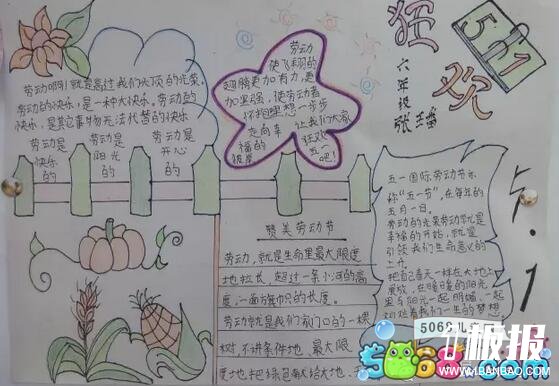 狂
欢
51
六年级
张
劳动啊！就是高过我们头顶的光荣。
劳动的快乐，是一种大快乐，劳动的
快乐，是其它事物无法代替的快乐
劳动是
快乐
的
劳动是
阳光
的
劳动是
开心
的
劳动
使飞翔的
翅膀更加有力，更
加坚强，使劳动者
怀抱理想一步步
走向幸
福的
让我们大家
狂欢
五一
吧！
五一国际劳动节亦
称"五一节"，在每年的
五月一日。
劳动的光荣劳动就是
幸福的开始，就是
引领我们生命意义的
上升
把自己春天一样在大地上
里与阳光一起明媚，一起
我们一生的梦想
5.1
赞美劳动节
劳动，就是生命里最大限度
地拉长，超过一条小河的高
度，一面旗帜的长度。
劳动就是我们家门口的一棵
树，不讲条件地，最大限
度地把绿色献给大地
5068儿童网
板报
5068.com
WWW.1BANBAO.COM